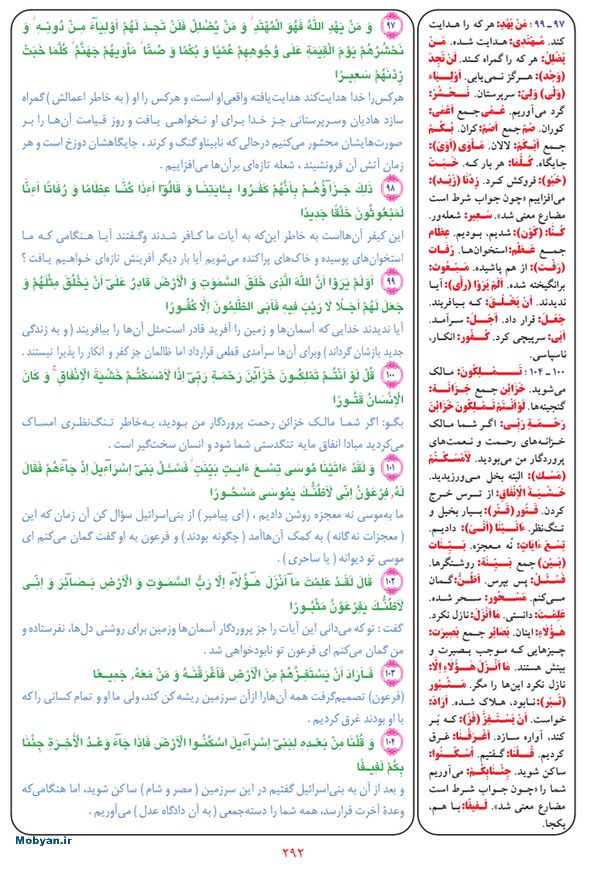 ۹۷ وَ مَنْ يَهْدِ اللّٰهُ فَهُوَ الْمُهْتَدِ وَ مَنْ يُضْلِلْ فَلَنْ تَجِدَ لَهُمْ اَوْلِيَآءَ مِنْ دُونِهِ وَ
نَحْشُرُهُمْ يَوْمَ الْقِيٰمَةِ عَلٰى وُجُوهِهِمْ عُمْيًا وَ بُكْمًا وَ صُمًّا مَاْوٰيهُمْ جَهَنَّمُ كُلَّمَا خَبَتْ
زِدْنٰهُمْ سَعيرًا
هرکس را خدا هدایت‌کند هدایت‌یافته واقعی‌او است، و هرکس را او (به خاطر اعمالش) گمراه
سازد هادیان وسرپرستانی جز خدا برای او نخواهی یافت و روز قیامت آن‌ها را بر
صورت‌هایشان محشور می‌کنیم درحالی که نابیناوگنگ و کرند ، جایگاهشان دوزخ است و هر
زمان آتش آن فرونشیند ، شعله تازه‌ای برآن‌ها می‌افزاییم .
۹۸ ذٰلِكَ جَزَآؤُهُمْ بِاَنَّهُمْ كَفَرُوا بِـَٔايٰتِنَا وَ قَالُوٓا اَءِذَا كُنَّا عِظَامًا وَ رُفَاتًا اَءِنَّا
لَمَبْعُوثُونَ خَلْقًا جَديدًا
این کیفر آن‌هااست به خاطر این‌که به آیات ما کافر شدند وگفتند آیا هنگامی که ما
استخوان‌های پوسیده و خاک‌های پراکنده می‌شویم آیا بار دیگر آفرینش تازه‌ای خواهیم یافت ؟
۹۹ اَوَلَمْ يَرَوْا اَنَّ اللّٰهَ الَّذى خَلَقَ السَّمٰوٰتِ وَ الْاَرْضَ قَادِرٌ عَلٰى اَنْ يَخْلُقَ مِثْلَهُمْ وَ
جَعَلَ لَهُمْ اَجَلًا لَا رَيْبَ فيهِ فَاَبَى الظّٰلِمُونَ اِلَّا كُفُورًا
آیا ندیدند خدایی که آسمان‌ها و زمین را آفرید قادر است‌مثل آن‌ها را بیافریند (و به زندگی
جدید بازشان گرداند) وبرای آن‌ها سرآمدی قطعی قرارداد اما ظالمان جز کفر و انکار را پذیرا نیستند .
۱۰۰ قُلْ لَوْ اَنْتُمْ تَمْلِكُونَ خَزَآئِنَ رَحْمَةِ رَبّى اِذًا لَاَمْسَكْتُمْ خَشْيَةَ الْاِنْفَاقِ وَ كَانَ
الْاِنْسَانُ قَتُورًا
بگو: اگر شما مالک خزائن رحمت پروردگار من بودید، به‌خاطر تنگ‌نظری امساک
می‌کردید مبادا انفاق مایه تنگدستی شما شود و انسان سخت‌گیر است .
۱۰۱ وَ لَقَدْ ءَاتَيْنَا مُوسٰى تِسْعَ ءَايٰتٍ بَيِّنٰتٍ فَسْـَٔلْ بَنى اِسْرَآءيلَ اِذْ جَآءَهُمْ فَقَالَ
لَهُ فِرْعَوْنُ اِنّى لَاَظُنُّكَ يٰمُوسٰى مَسْحُورًا
ما به‌موسی نه معجزه روشن دادیم ، (ای پیامبر) از بنی‌اسرائیل سؤال کن آن زمان که این
(معجزات نه‌گانه) به کمک آن‌هاآمد (چگونه بودند) و فرعون به او گفت گمان می‌کنم ای
موسی تو دیوانه (یا ساحری) .
۱۰۲ قَالَ لَقَدْ عَلِمْتَ مَآ اَنْزَلَ هٰٓؤُلَآءِ اِلَّا رَبُّ السَّمٰوٰتِ وَ الْاَرْضِ بَصَآئِرَ وَ اِنّى
لَاَظُنُّكَ يٰفِرْعَوْنُ مَثْبُورًا
گفت : تو که می‌دانی این آیات را جز پروردگار آسمان‌ها وزمین برای روشنی دل‌ها، نفرستاده و
من گمان می‌کنم ای فرعون تو نابودخواهی شد .
۱۰۳ فَـاَرَادَ اَنْ يَسْتَفِزَّهُمْ مِنَ الْاَرْضِ فَاَغْرَقْنٰهُ وَ مَنْ مَعَهُ جَميعًا
(فرعون) تصمیم‌گرفت همه آن‌هارا ازآن سرزمین ریشه کن کند، ولی ما او و تمام کسانی را که
با او بودند غرق کردیم .
۱۰۴ وَ قُلْنَا مِنْ بَعْدِهِ لِبَنى اِسْرَآءيلَ اسْكُنُوا الْاَرْضَ فَاِذَا جَآءَ وَعْدُ الْاٰخِرَةِ جِئْنَا
بِكُمْ لَفيفًا
و بعد از آن به بنی‌اسرائیل گفتیم در این سرزمین (مصر و شام) ساکن شوید، اما هنگامی‌که
وعدهٔ آخرت فرارسد، همه شما را دسته‌جمعی (به آن دادگاه عدل) می‌آوریم .
۹۷ ـ ۹۹ : مَنْ يَهْدِ: هر که را هدایت
کند. مُـهْتَدِى: هدایت شده. مَـنْ
يُضْلِلْ: هر که را گمراه کند. لَنْ تَجِدَ
(وَجَدَ): هرگز نمی‌یابی. اَوْلِيَـاء
(وَلَى) وَلِىّ: سرپرستان. نَـحْشُـرُ:
گرد می‌آوریم. عُمى جمع اَعْمى:
کوران. صُمّ جمع اَصَمّ: کران. بُكْـم
جمع اَبْكَمْ: لالان. مَـأوى (اَوَىَ):
جایگاه. كُلَّمـا: هر بار که. خَـبَتْ
(خَبَوَ): فروکش کرد. زِدْنا (زَیَدَ):
می‌افزاییم «چون جواب شرط است
مضارع معنی شد». سَعير: شعله‌ور.
كُنَّا (كَوَنَ): شدیم، بودیم. عِظام
جمع عَظْم: استخوان‌ها. رُفـات
(رَفَتَ): از هم پاشیده. مَبْعُوث:
برانگیخته شده. اَلَمْ يَرَوْا (رَأَىَ): آیا
ندیدند. اَنْ يَخْلُقَ: که بیافریند.
جَعَلَ: قرار داد. اَجَل: سرآمد.
اَبى: سرپیچی کرد. كُفُور: انکار،
ناسپاسی.
۱۰۰ ـ ۱۰۴ : تَـمْـلِـكُونَ: مالک
می‌شوید. خَزائِن جمع خِزانَة:
گنجینه‌ها. لَوْ اَنْتُمْ تَمْلِكُونَ خَزائِنَ
رَحْـمَةِ رَبّى: اگر شما مالک
خزانه‌های رحمت و نعمت‌های
پروردگار من می‌بودید. لَاَمْسَكْتُمْ
(مَسَكَ): البته بخل می‌ورزیدید.
خَشْيَةَ الْاِنْفاقِ: از ترس خرج
کردن. قَتُور (قَتَرَ): بسیار بخیل و
تنگ‌نظر. ءَاتَيْنا (اَتَىَ): دادیم.
تِسْعَ ءَايات: نُه معجزه. بَيِّنات
(بَيَنَ) جمع بَيِّنَة: روشنگرها.
فَسْئَلْ: پس بپرس. اَظُنُّ: گمان
می‌کنم. مَسْحُور: سحر شده.
عَلِمْتَ: دانستی. ما اَنْزَلَ: نازل نکرد.
هٰؤُلاءِ: اینان. بَصائِر جمع بَصيرَت:
چیزهایی که موجب بصیرت و
بینش هستند. ما اَنْزَلَ هٰؤُلاءِ اِلاَّ:
نازل نکرد این‌ها را مگر. مَثْـبُور
(ثَبَرَ): نابود، هلاک شده. اَرادَ:
خواست. اَنْ يَسْتَفِزَّ (فَزَّ): که بَر
کند، آواره سازد. اَغْرَقْنـا: غرق
کردیم. قُـلْنا: گفتیم. اُسْكُـنُوا:
ساکن شوید. جِئْنابِكُمْ: می‌آوریم
شما را «چون جواب شرط است
مضارع معنی شد». لَفيفًا: با هم،
یکجا.
Mobyan.ir
۲۹۲